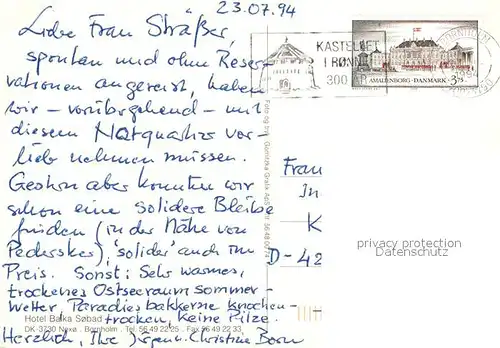 23.07.94
Liebe Frau Sträßer,
spontan und ohne Reser-
vationen angereist, haben
wir - vorübergehend - mit
diesem Notquartier vor-
lieb nehmen müssen.
Gestern aber konnten wir
schon eine solidere Bleibe
finden (in der Nähe von
Pedersker), 'solider' auch im
Preis. Sonst: Sehr warmes,
trockenes Ostseeraum sommer-
wetter, Paradiesbakkerne knochen-
trocken, keine Pilze.
Herzlich, Ihre Christine Born
Hotel Balka Søbad
DK-3730 Nexø . Bornholm . Tlf. 56 49 22 25 . Fax 56 49 22 33
KASTELLET
I RØNNE
300 ÅR
AMALIENBORG · DANMARK
Frau
In
K
D-42
privacy protection
Datenschutz